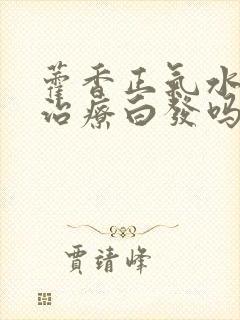 藿香正氣水
治療白發吗
賈靖峰